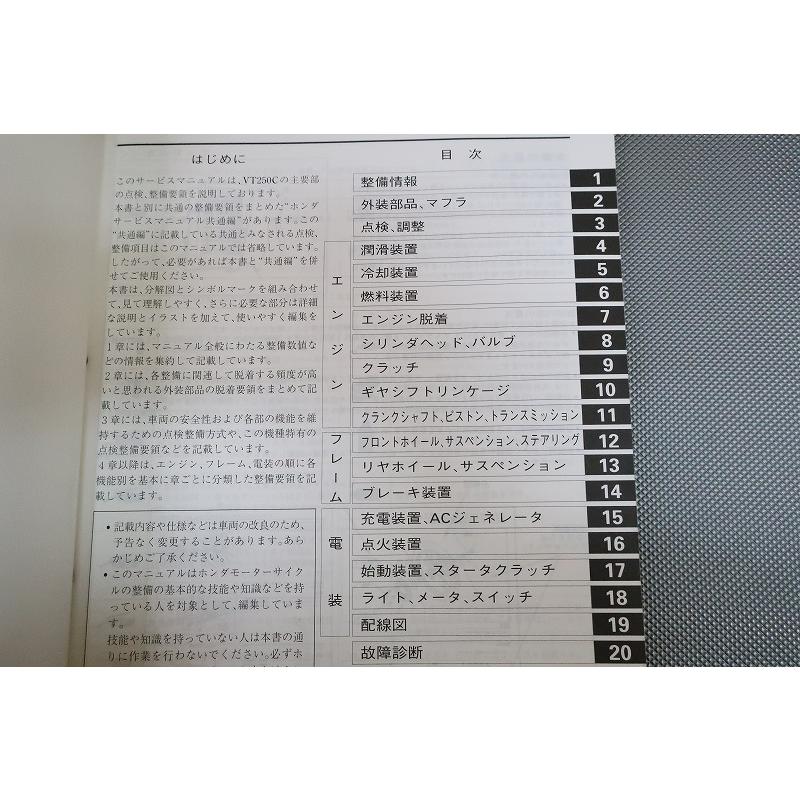 はじめに
このサービスマニュアルは、VT250Cの主要部
の点検、整備要領を説明しております。
本書と別に共通の整備要領をまとめた“ホンダ
サービスマニュアル共通編”があります。この
“共通編”に記載している共通とみなされる点検、
整備項目はこのマニュアルでは省略しています。
したがって、必要があれば本書と“共通編”を併
せてご使用ください。
本書は、分解図とシンボルマークを組み合わせ
て、見て理解しやすく、さらに必要な部分は詳細
な説明とイラストを加えて、使いやすく編集を
しています。
1章には、マニュアル全般にわたる整備数値な
どの情報を集約して記載しています。
2章には、各整備に関連して脱着する頻度が高
いと思われる外装部品の脱着要領をまとめて記
載しています。
3章には、車両の安全性および各部の機能を維
持するための点検整備方式や、この機種特有の
点検整備要領などを記載しています。
4章以降は、エンジン、フレーム、電装の順に各
機能別を基本に章ごとに分類した整備要領を記
載しています。
• 記載内容や仕様などは車両の改良のため、
予告なく変更することがあります。あら
かじめご了承ください。
• このマニュアルはホンダモーターサイク
ルの整備の基本的な技能や知識などを持
っている人を対象として、編集していま
す。
技能や知識を持っていない人は本書の通
りに作業を行わないでください。必ずホ
目 次
整備情報 1
外装部品、マフラ 2
点検、調整 3
エンジン
潤滑装置 4
冷却装置 5
燃料装置 6
エンジン脱着 7
シリンダヘッド、バルブ 8
クラッチ 9
ギヤシフトリンケージ 10
クランクシャフト、ピストン、トランスミッション 11
フレーム
フロントホイール、サスペンション、ステアリング 12
リヤホイール、サスペンション 13
ブレーキ装置 14
電装
充電装置、ACジェネレータ 15
点火装置 16
始動装置、スタータクラッチ 17
ライト、メータ、スイッチ 18
配線図 19
故障診断 20